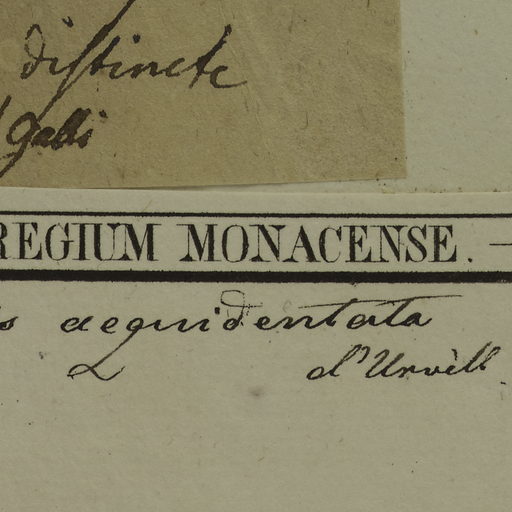 distincte
Galli
REGIUM MONACENSE. —
s aequidentata
d'Urvill.